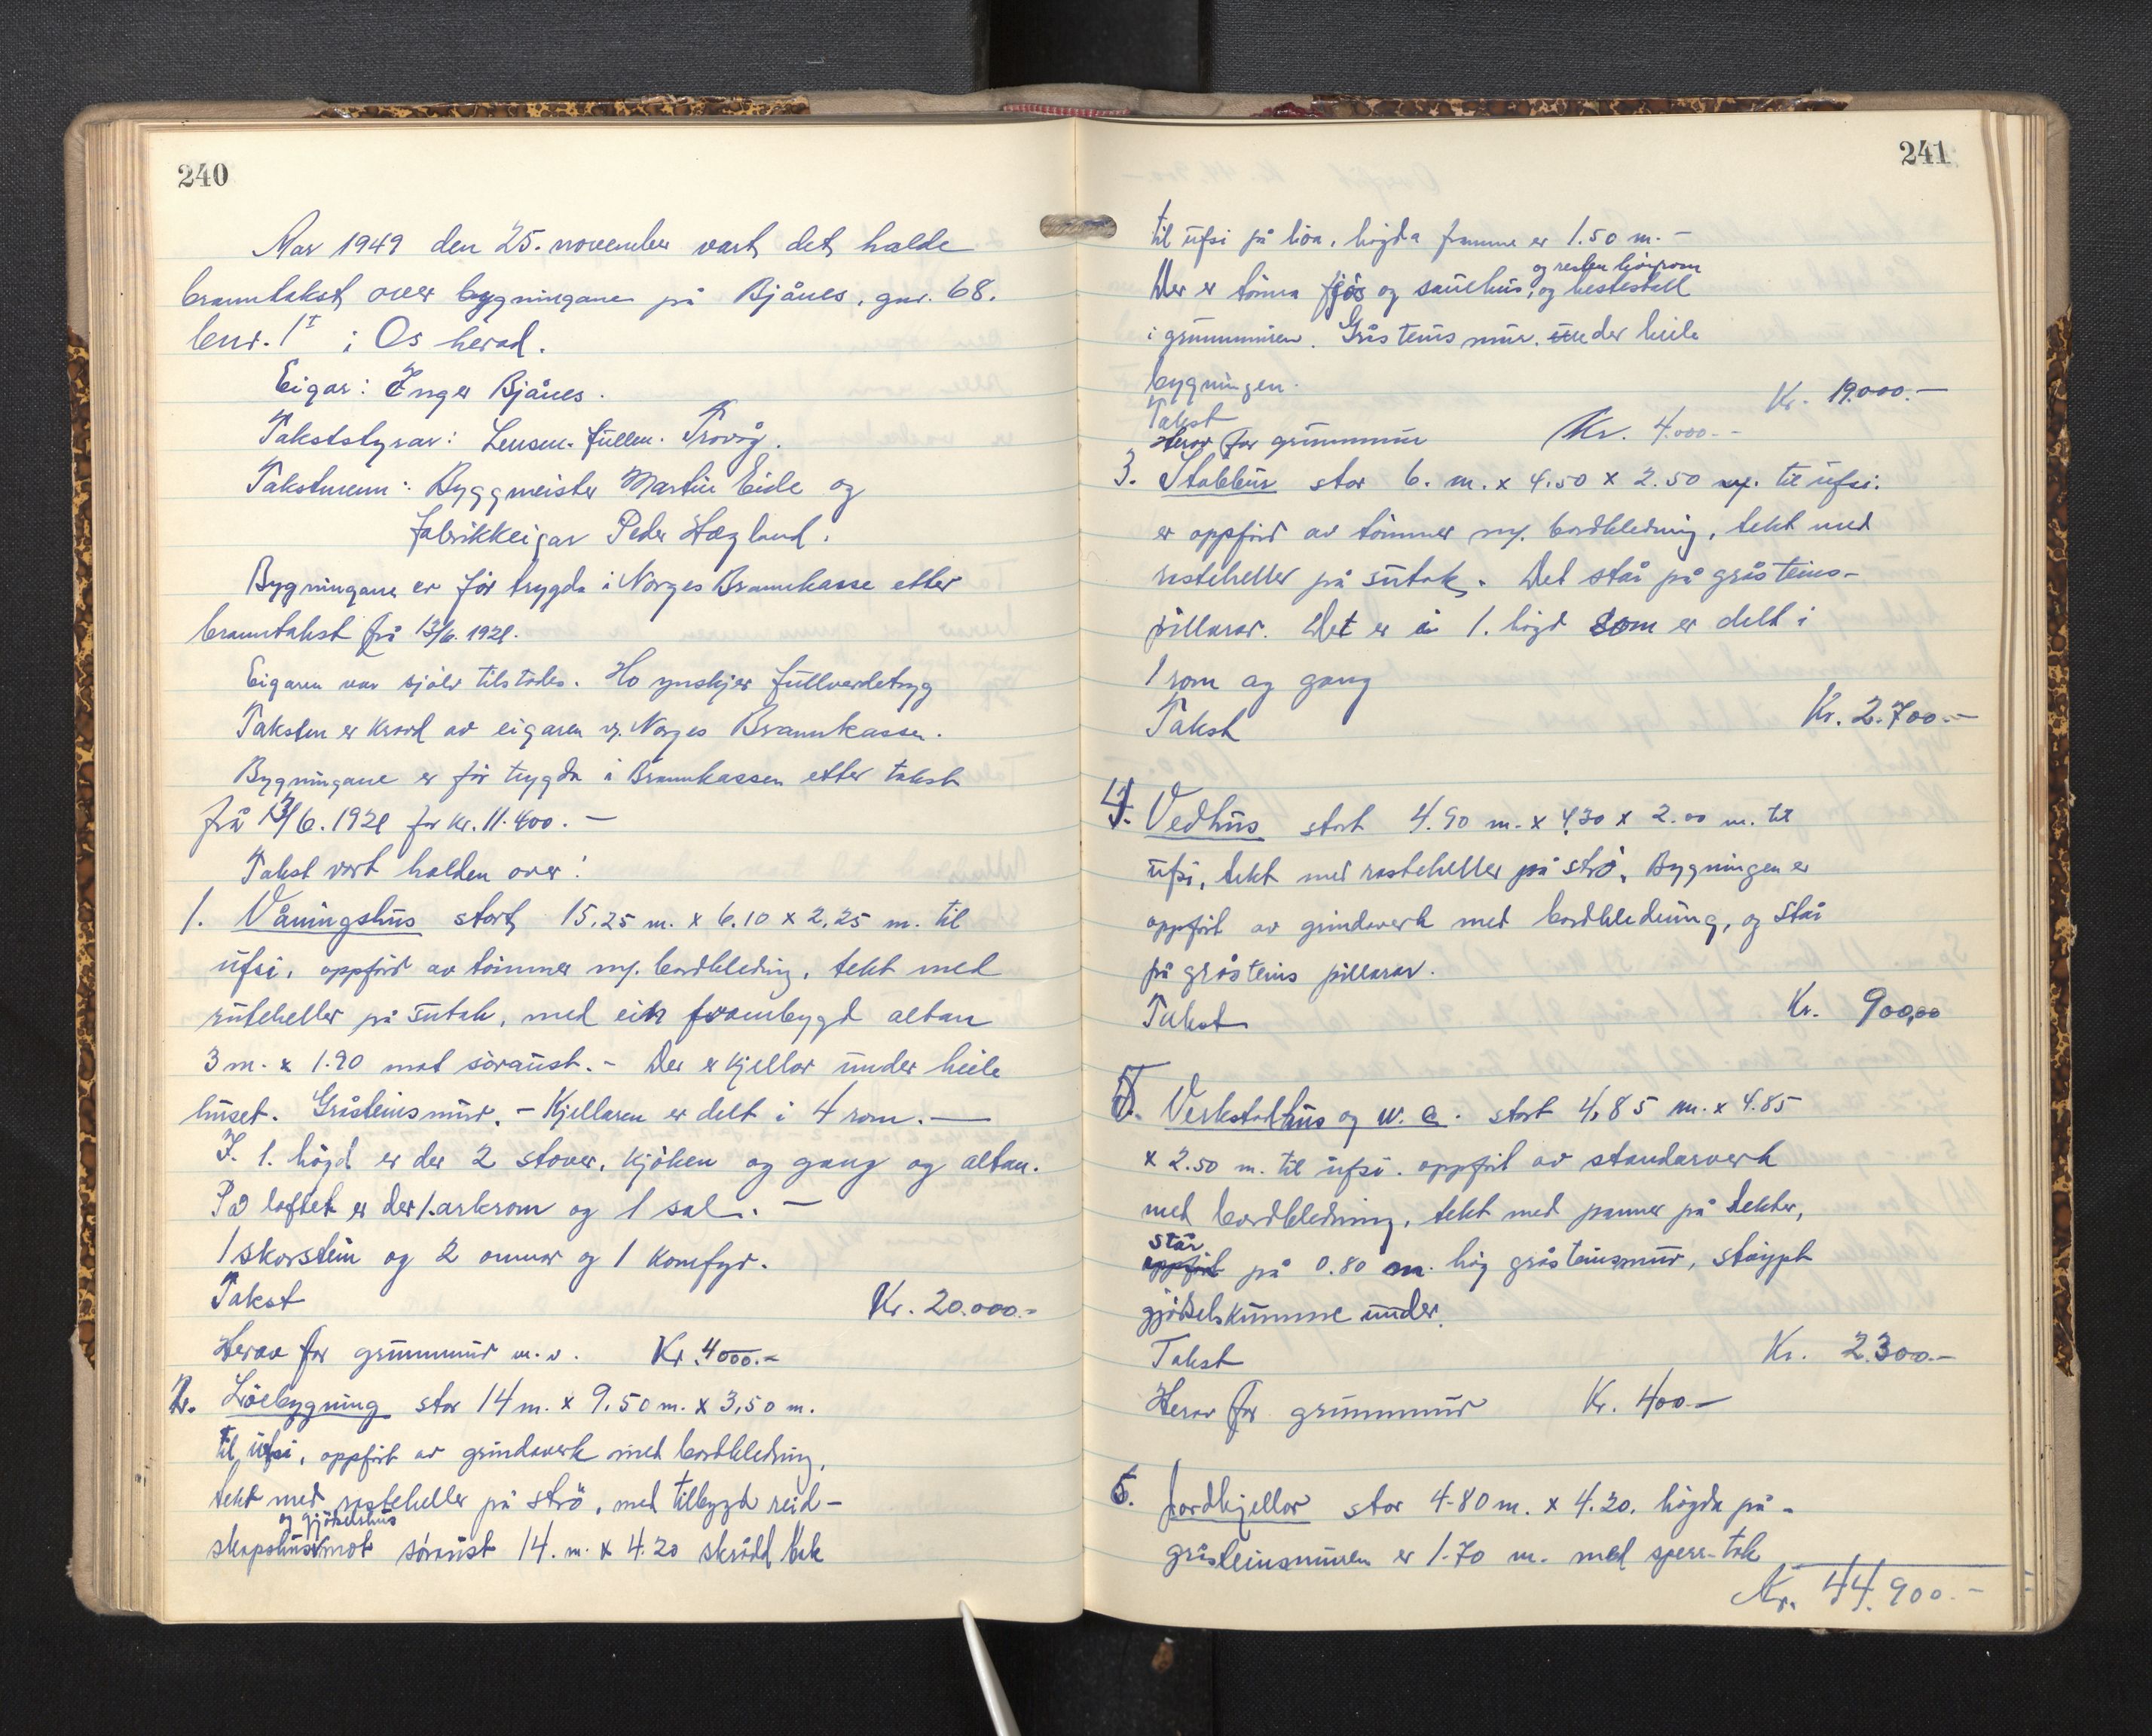 240
Aar 1949 den 25. november vart det halde
branntakst over bygningane på Bjånes, gnr. 68.
bnr. 1 I i Os herad.
Eigar: Inger Bjånes.
Takststyrar: Lensm. fullm. Trovåg.
Takstmenn: Byggmeister Martin Eide og
fabrikkeigar Peder Hægland.
Bygningane er før trygda i Norges Brannkasse etter
branntakst frå 13/6. 1921.
Eigaren var sjølv tilstades. Ho ynskjer fullverdetrygd
Taksten er kravd av eigaren og Norges Brannkasse.
Bygningane er før trygda i Brannkassen etter takst
frå 13/6. 1921 for kr. 11.400.—
Takst vart halden over:
1. Våningshus stort 15,25 m. x 6.10 x 2,25 m. til
ufsi, oppførd av tømmer m/. bordkledning, tekt med
ruteheller på sutak, med ein frambygd altan
3 m. x 1.90 mot søraust.- Der er kjellar under heile
huset. Gråsteinsmur. - Kjellaren er delt i 4 rom.—
I. 1. høgd er der 2 stover, kjøken og gang og altan.
På loftet er der 1. arkrom og 1 sal. —
1 skorstein og 2 omnar og 1 komfyr.
Takst Kr. 20.000.-
Herav for grunnmur m.v. Kr. 4000.-
2. Løebygning stor 14 m. x 9.50 m. x 3,50 m.
til ufsi, oppført av grindverk med bordkledning,
tekt med rasteheller på strø, med tilbygd reid-
og gjødselshus
skapshus mot søraust 14. m. x 4.20 skrådd bak
241
til ufsi på løa, høgda framme er 1.50 m. -
og resten høyrom
Der er tømra fjøs og sauehus, og hestestall
i grunnmuren. Gråsteins mur under heile
bygningen.
Takst Kr. 19.000.—
Herav for grunnmur Kr. 4.000.-
3. Stabbur stor 6. m. x 4.50 x 2.50 m. til ufsi.
er oppførd av tømmer m/. bordkledning, tekt med
rasteheller på sutak. Det står på gråsteins-
pillarar. Det er i 1. høgd som er delt i
1 rom og gang
Takst Kr. 2.700.—
4. Vedhus stort 4.90 m. x 4,30 x 2.00 m. til
ufsi, tekt med rasteheller på strø. Bygningen er
oppført av grindverk med bordkledning, og står
på gråsteins pillarar.
Takst Kr. 900,00
5. Verkstadhus og w.c. stort 4,85 m. x 4.85
x 2.50 m. til ufsi. oppført av standarverk
med bordkledning, tekt med panner på lekter,
står
oppført på 0.80 m. høg gråsteinsmur, støypt
gjødselskumme under.
Takst Kr. 2.300.-
Herav for grunnmur Kr. 400.-
6. Jordkjellar stor 4.80 m. x 4.20. høgda på -
gråsteinsmuren er 1.70 m. med sperr-tak
Kr. 44.900.-